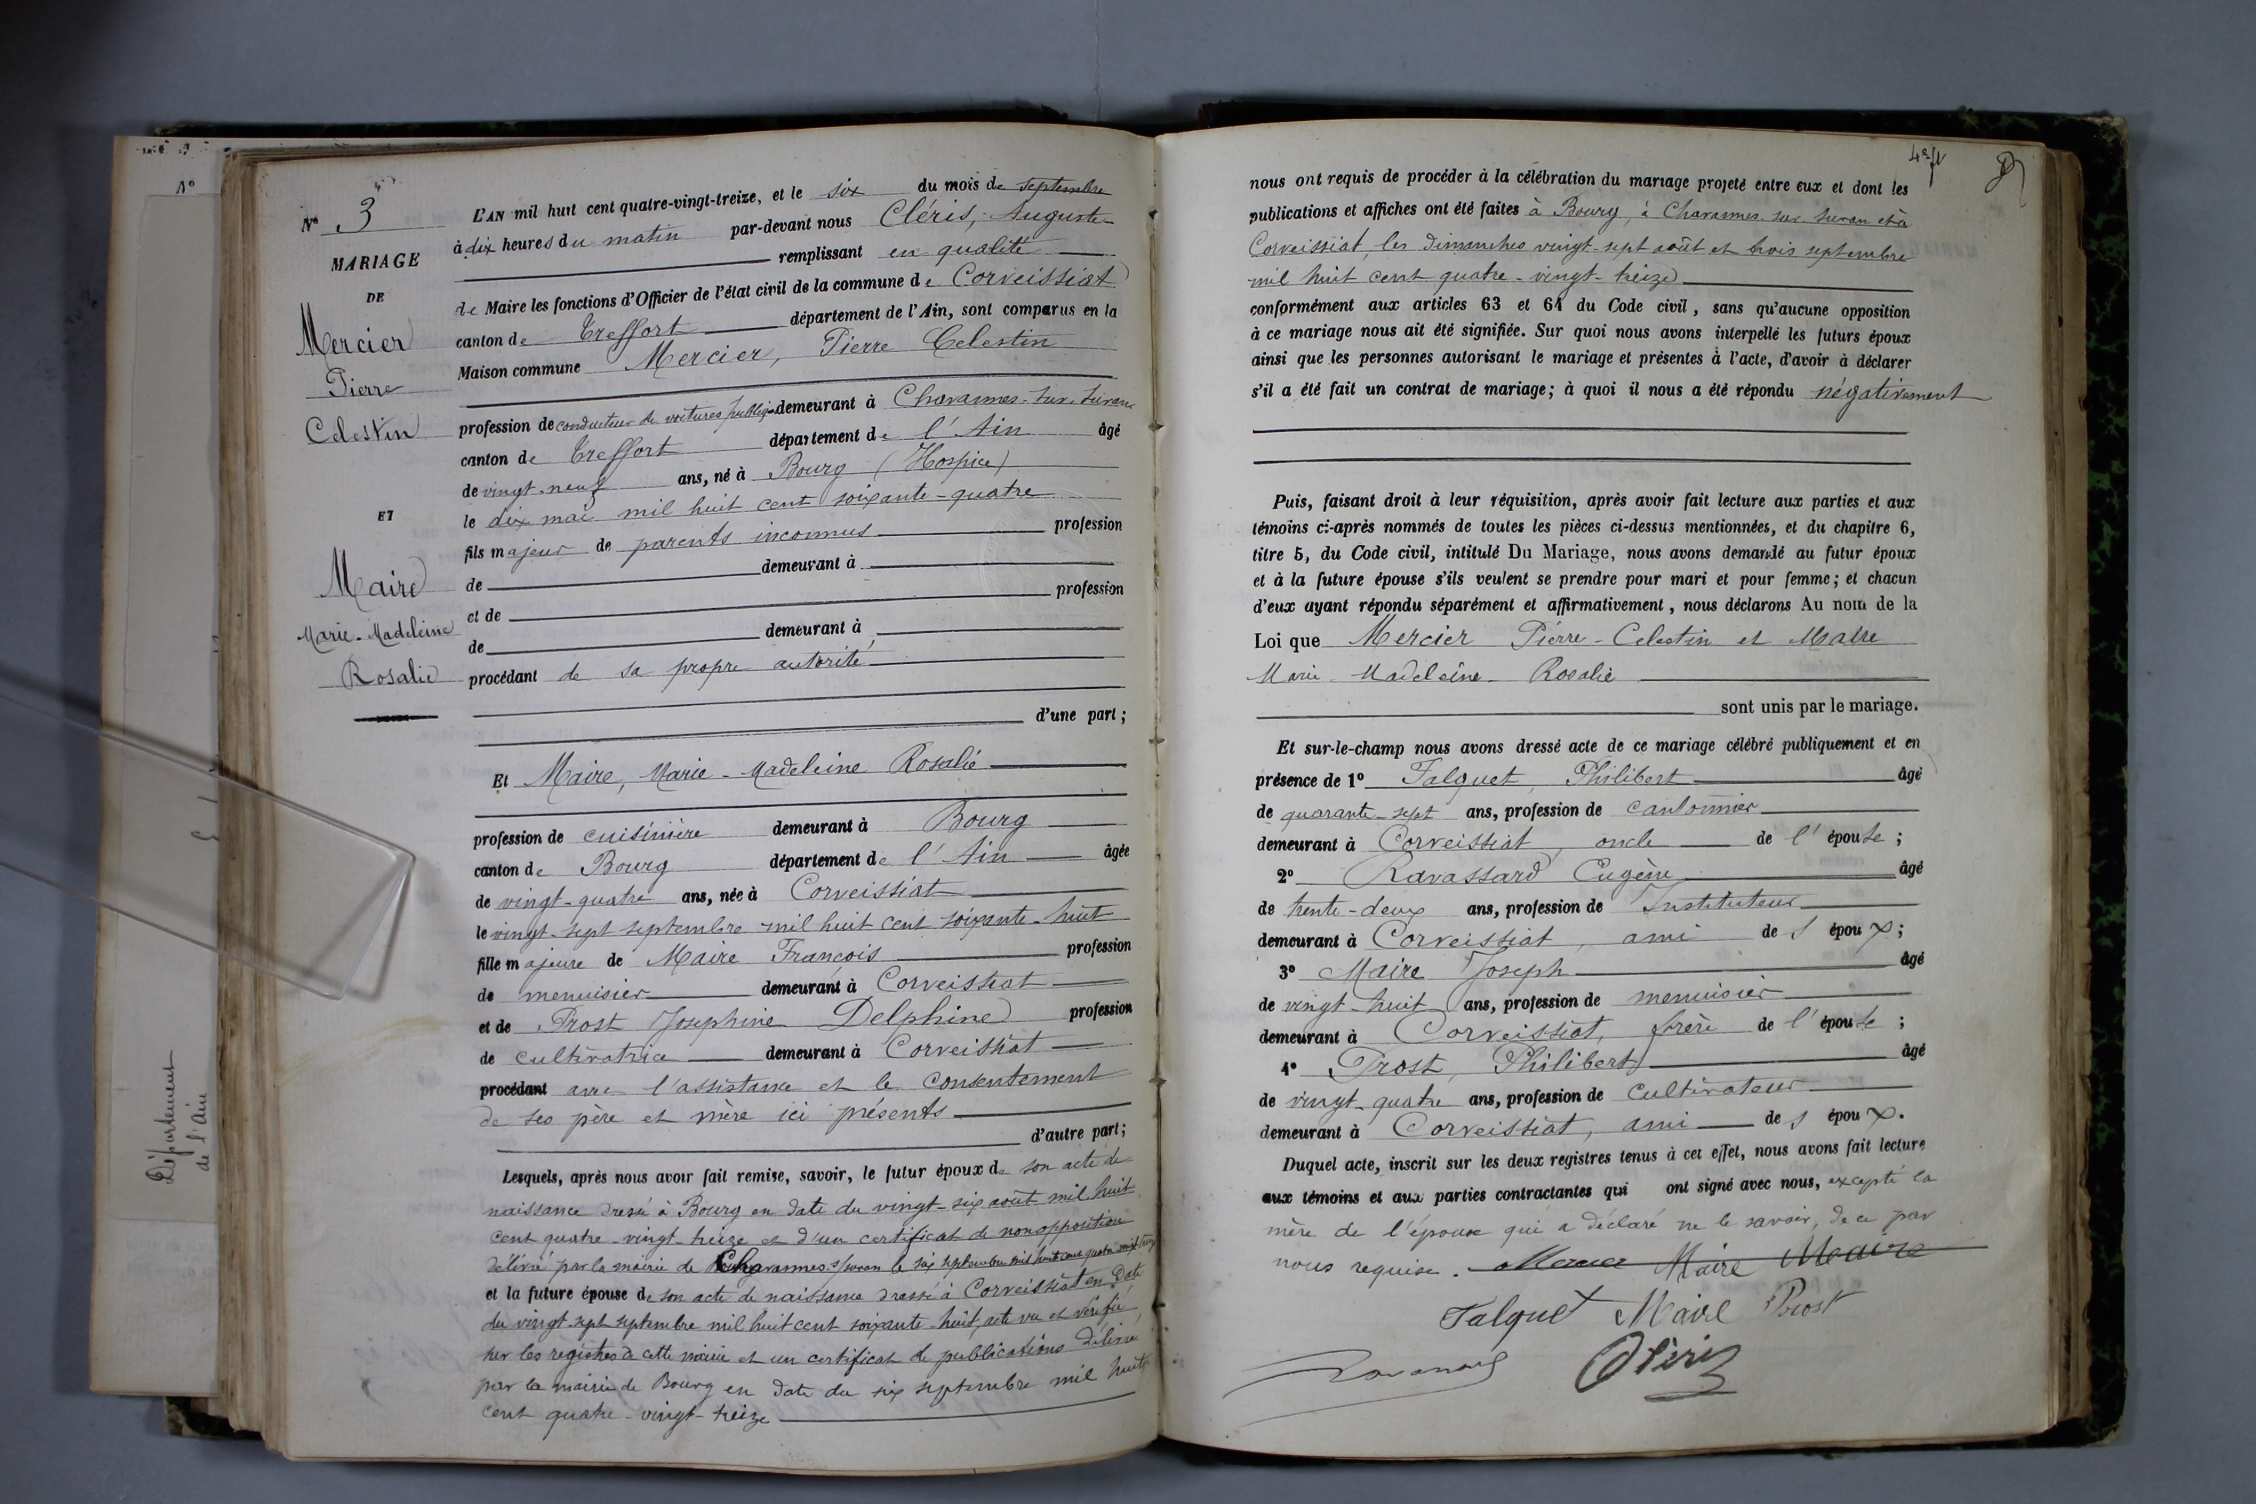 N° 3
MARIAGE
DE
Mercier
Pierre
Celestin
ET
Maire
Marie-Madeleine
Rosalie
L'AN mil huit cent quatre-vingt-treize, et le six du mois de septembre
à dix heures du matin par-devant nous Cléris, Auguste
remplissant en qualité
de Maire les fonctions d'Officier de l'état civil de la commune de Corveissiat
canton de Treffort département de l'Ain, sont comparus en la
Maison commune Mercier, Pierre Celestin
profession de conducteur de voitures publiq demeurant à Chavannes-sur-Suran
canton de Treffort département de l'Ain âgé
de vingt-neuf ans, né à Bourg (Hospice)
le dix mai mil huit cent soixante-quatre
fils majeur de parents inconnus profession
de demeurant à
et de profession
de demeurant à
procédant de sa propre autorité
d'une part;
Et Maire, Marie-Madeleine Rosalie
profession de cuisinière demeurant à Bourg
canton de Bourg département de l'Ain âgée
de vingt-quatre ans, née à Corveissiat
le vingt-sept septembre mil huit cent soixante-huit
fille majeure de Maire François profession
de menuisier demeurant à Corveissiat
et de Prost Josephine Delphine profession
de cultivatrice demeurant à Corveissiat
procédant avec l'assistance et le consentement
de ses père et mère ici présents
d'autre part;
Lesquels, après nous avoir fait remise, savoir, le futur époux de son acte de
naissance dressé à Bourg en date du vingt-six août mil huit
cent quatre-vingt-treize et d'un certificat de non opposition
délivré par la mairie de Chavannes s/suran le six septembre mil huit cent quatre vingt treize
et la future épouse de son acte de naissance dressé à Corveissiat en date
du vingt-sept septembre mil huit cent soixante-huit, acte vu et vérifié
sur les registres de cette mairie et un certificat de publications délivré
par la mairie de Bourg en date du six septembre mil huit
cent quatre-vingt-treize
Département
de l'Ain
nous ont requis de procéder à la célébration du mariage projeté entre eux et dont les
publications et affiches ont été faites à Bourg, à Chavannes sur Suran et à
Corveissiat, les dimanches vingt-sept août et trois septembre
mil huit cent quatre-vingt-treize
conformément aux articles 63 et 64 du Code civil, sans qu'aucune opposition
à ce mariage nous ait été signifiée. Sur quoi nous avons interpellé les futurs époux
ainsi que les personnes autorisant le mariage et présentes à l'acte, d'avoir à déclarer
s'il a été fait un contrat de mariage; à quoi il nous a été répondu négativement
Puis, faisant droit à leur réquisition, après avoir fait lecture aux parties et aux
témoins ci-après nommés de toutes les pièces ci-dessus mentionnées, et du chapitre 6,
titre 5, du Code civil, intitulé Du Mariage, nous avons demandé au futur époux
et à la future épouse s'ils veulent se prendre pour mari et pour femme; et chacun
d'eux ayant répondu séparément et affirmativement, nous déclarons Au nom de la
Loi que Mercier Pierre-Celestin et Maire
Marie-Madeleine-Rosalie
sont unis par le mariage.
Et sur-le-champ nous avons dressé acte de ce mariage célébré publiquement et en
présence de 1° Falquet, Philibert âgé
de quarante-sept ans, profession de cantonnier
demeurant à Corveissiat, oncle de l'épouse;
2° Ravassard Eugène âgé
de trente-deux ans, profession de Instituteur
demeurant à Corveissiat, ami de s époux;
3° Maire Joseph âgé
de vingt-huit ans, profession de menuisier
demeurant à Corveissiat, frère de l'épouse;
4° Prost, Philibert âgé
de vingt-quatre ans, profession de cultivateur
demeurant à Corveissiat, ami de s époux.
Duquel acte, inscrit sur les deux registres tenus à cet effet, nous avons fait lecture
aux témoins et aux parties contractantes qui ont signé avec nous, excepté la
mère de l'épouse qui a déclaré ne le savoir, de ce par
nous requise. Maire Maire
Falquet Maire Prost
Cléris